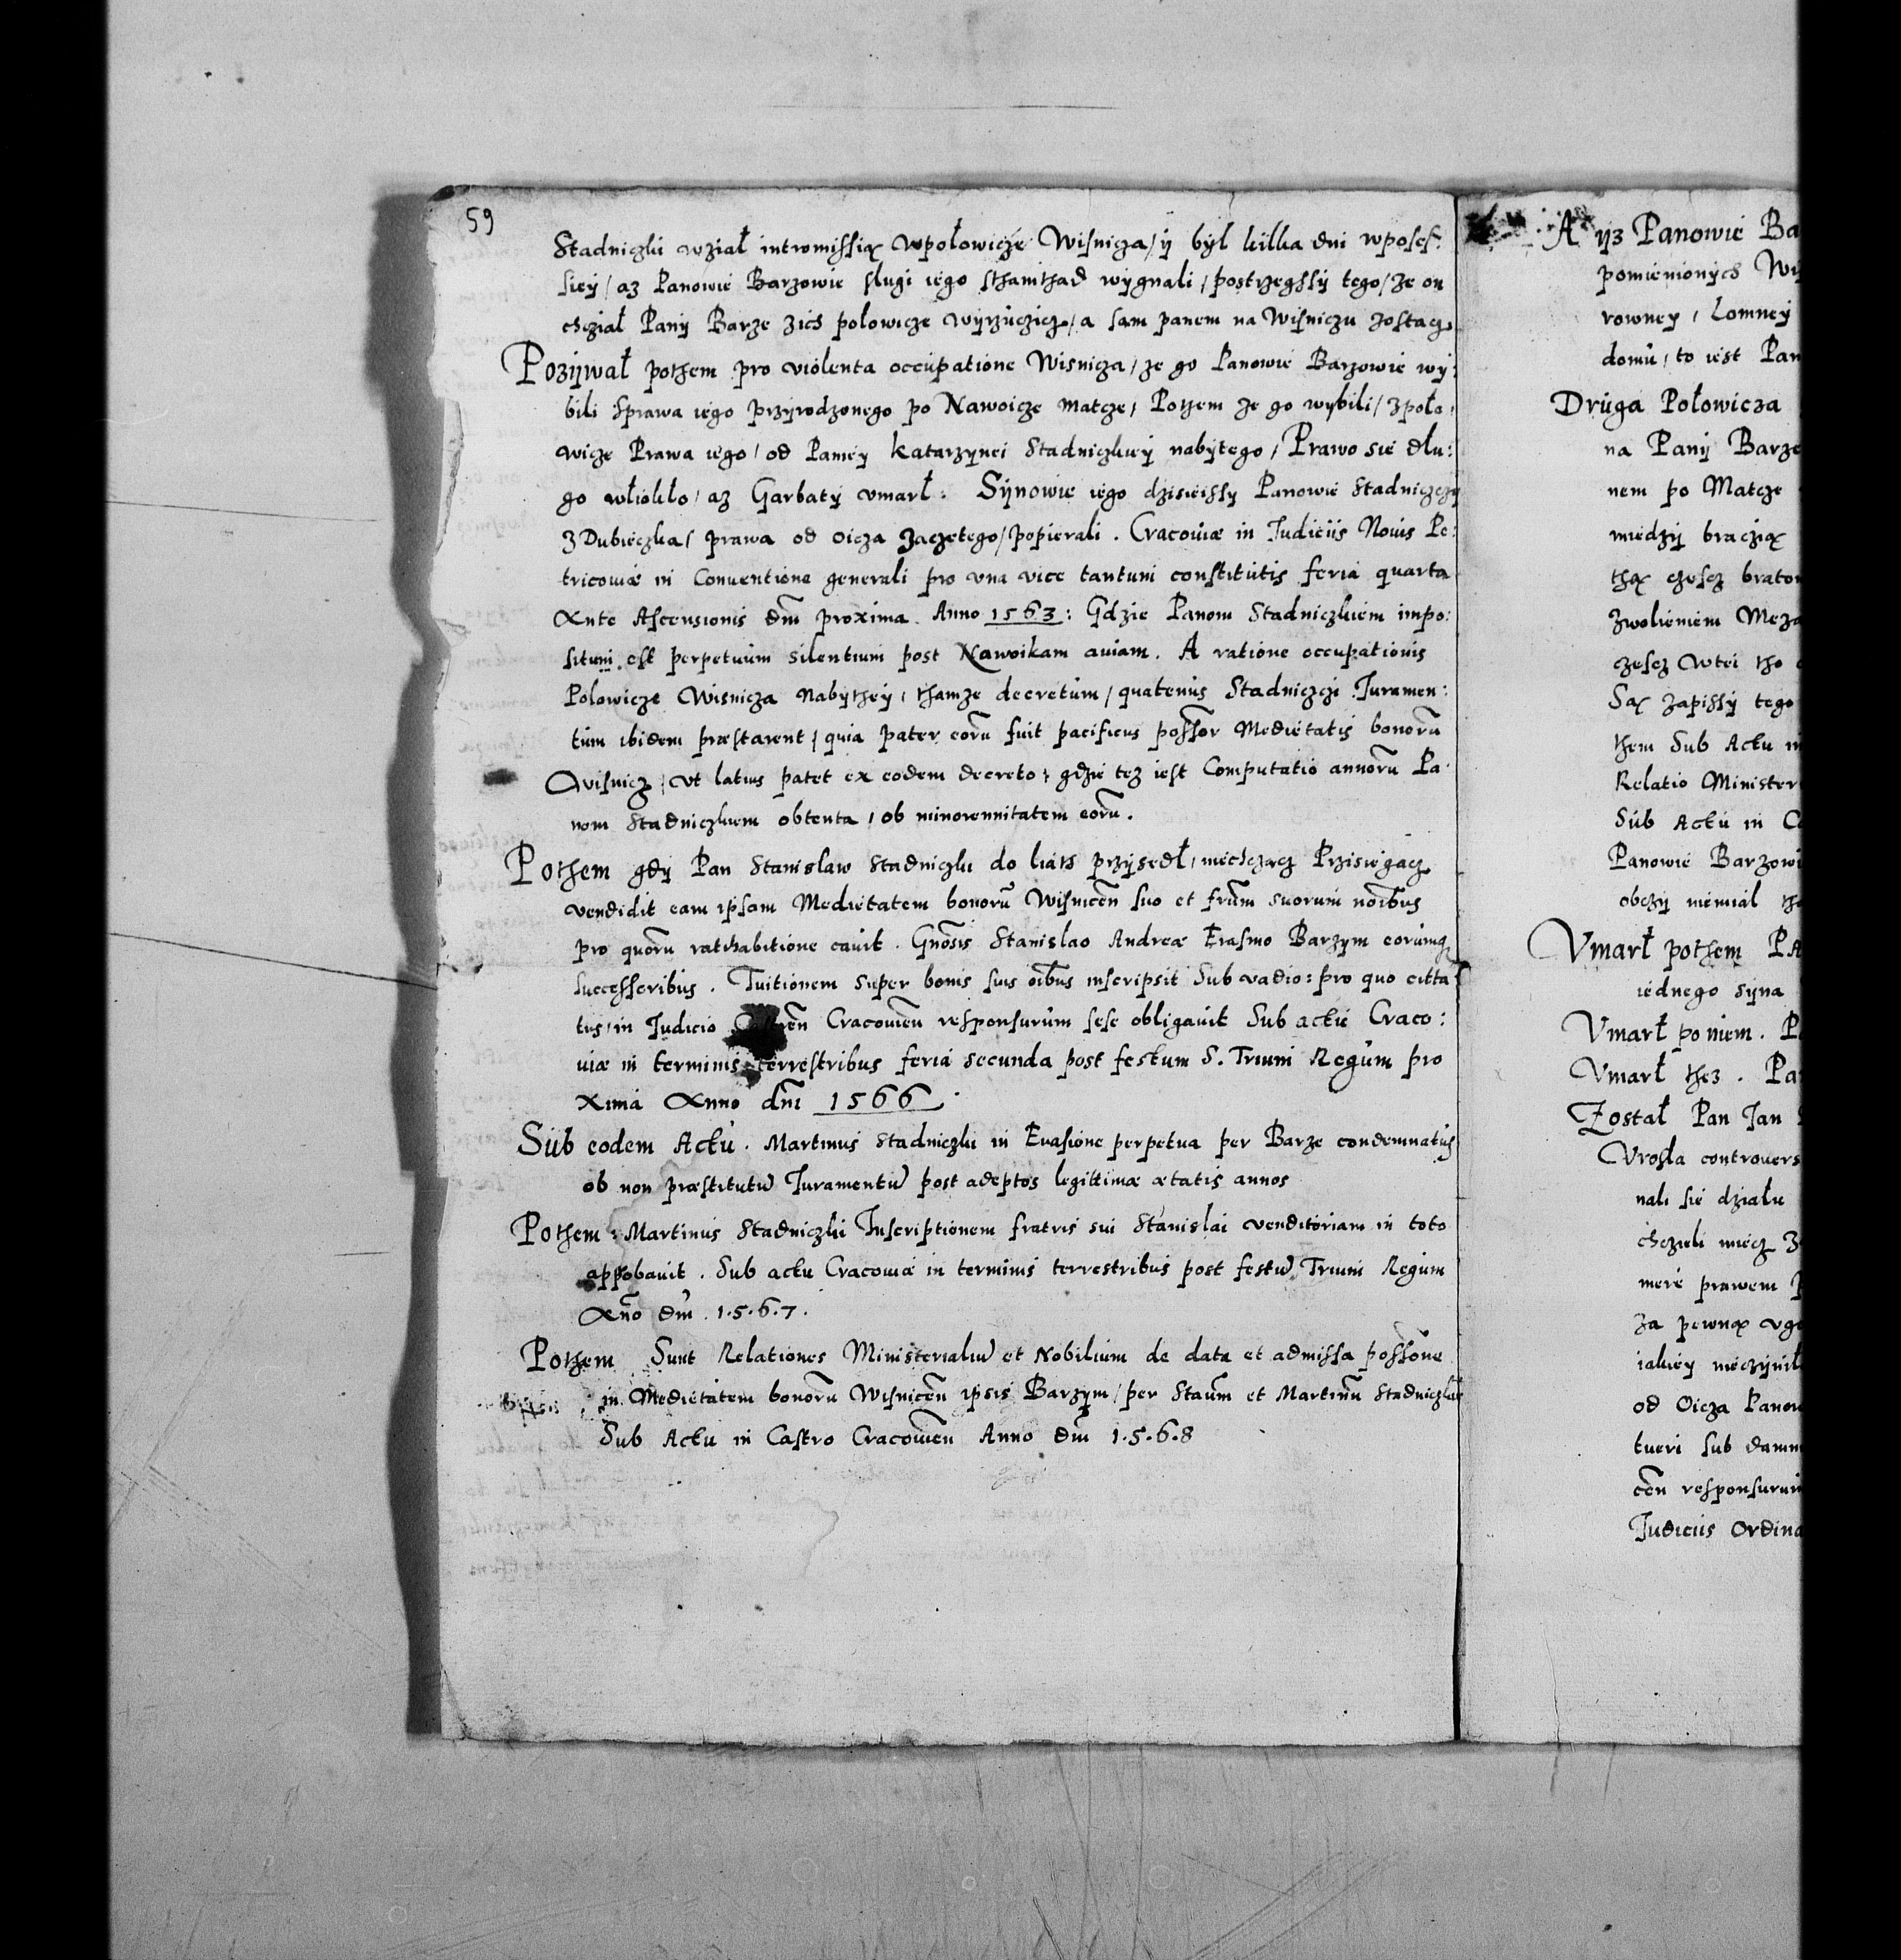 59
Stadniczki wział intromissią wpołowicze Wisnicza / ÿ bÿl kilka dni wposes:
sieÿ / az Panowie Barzowie slugi iego sthamthad wÿgnali / postrzegssÿ tego / ze on
chcział Panÿ Barze zich polowicze wÿrzucicz / a sam panem na Wisniczu zostacz
Pozÿwał pothem pro violenta occupatione Wisnicza / ze go Panowie Barzowie wÿ:
bili sprawa iego przÿrodzonego po Nawoicze matcze / Pothem ze go wÿbili / zpoło:
wicze Prawa iego / od Paniey Katarzÿnei Stadniczkiey nabÿtego / Prawo sie dłu:
go włiokło / az Garbatÿ vmarł: Sÿnowie iego dzisieissÿ Panowie Stadniczczÿ
z Dubieczka / prawa od oicza zaczetego / popierali. Cracoviæ in Judiciis Novis Pe:
tricoviæ in Conventione generali pro vna vice tantum constitutis feria quarta
Ante Ascensionis dm̃ proxima Anno 1563: Gdzie Panom Stadniczkiem impo:
situm est perpetuum silentium post Nawoikam aviam. A ratione occupationis
Polowicze Wisnicza nabÿtheÿ / thamze decretum / quatenus Stadniczczi Juramen:
tum ibidem præstarent / quia pater eorũ fuit pacificus possor Medietatis bonorũ
Wisnicz / vt latius patet ex eodem decreto / gdzie tez iest Computatio annorũ Pa
nom Stadniczkiem obtenta / ob minorennitatem eorũ.
Pothem gdÿ Pan Stanislaw Stadniczki do liath przÿsedł / niechczącz Przisiegacz
vendidit eam ipsam Medietatem bonorũ Wisnicen̄ suo et frũm suorum noĩbus
pro quorũ ratihabitione cavit. Gnõsis Stanislao Andreæ Erasmo Barzym eorumq
successoribus. Tuitionem super bonis suis oĩbus inscripsit sub vadio: pro quo citta
tus / in Judicio Castren̄ Cracovien̄ responsurum sese obligavit Sub actu Craco:
viæ in terminis terrestribus feria secunda post festum S. Trium Regum pro
xima Anno dñi 1566.
Sub eodem Actu. Martinus Stadniczki in Evasione perpetua per Barze condemnatus
ob non præstitutũ Juramentũ post adeptos legittimæ ætatis annos
Pothem: Martinus Stadniczki Inscriptionem fratris sui Stanislai venditoriam in toto
approbavit. Sub actu Cracoviæ in terminis terrestribus post festũ Trium Regum
Anõ dm̃. 1.5.6.7.
Pothem Sunt Relationes Ministerialiũ et Nobilium de data et admissa possõne
in Medietatem bonorũ Wisnicen̄ ipsis Barzym / per Staũm et Martinũ Stadniczkie
Sub Actu in Castro Cracovien̄ Anno dm̃ 1.5.6.8
A yz Panowie Ba
pomienionÿch Wi
rowney / Lomney
domu / to iest Pan
Druga Połowicza
na Panÿ Barze
nem po Matcze
miedzÿ braczią
thą czescz brator
zwolieniem Meza
czescz wtei tho
Są zapissÿ tego
them Sub Actu in
Relatio Minister
Sub Actu in C
Panowie Barzowi
obczÿ niemial tho
Vmarł pothem PA
iednego sÿna
Vmarł po niem. P
Vmarł thez. Pa
Został Pan Jan
Vrosła controvers
nali sie działu
chczieli miecz
mere prawem
za pewną vgo
iakieÿ nieczÿnił
od Oicza Panow
tueri sub damn
cen̄ responsurum
Judiciis Ordina